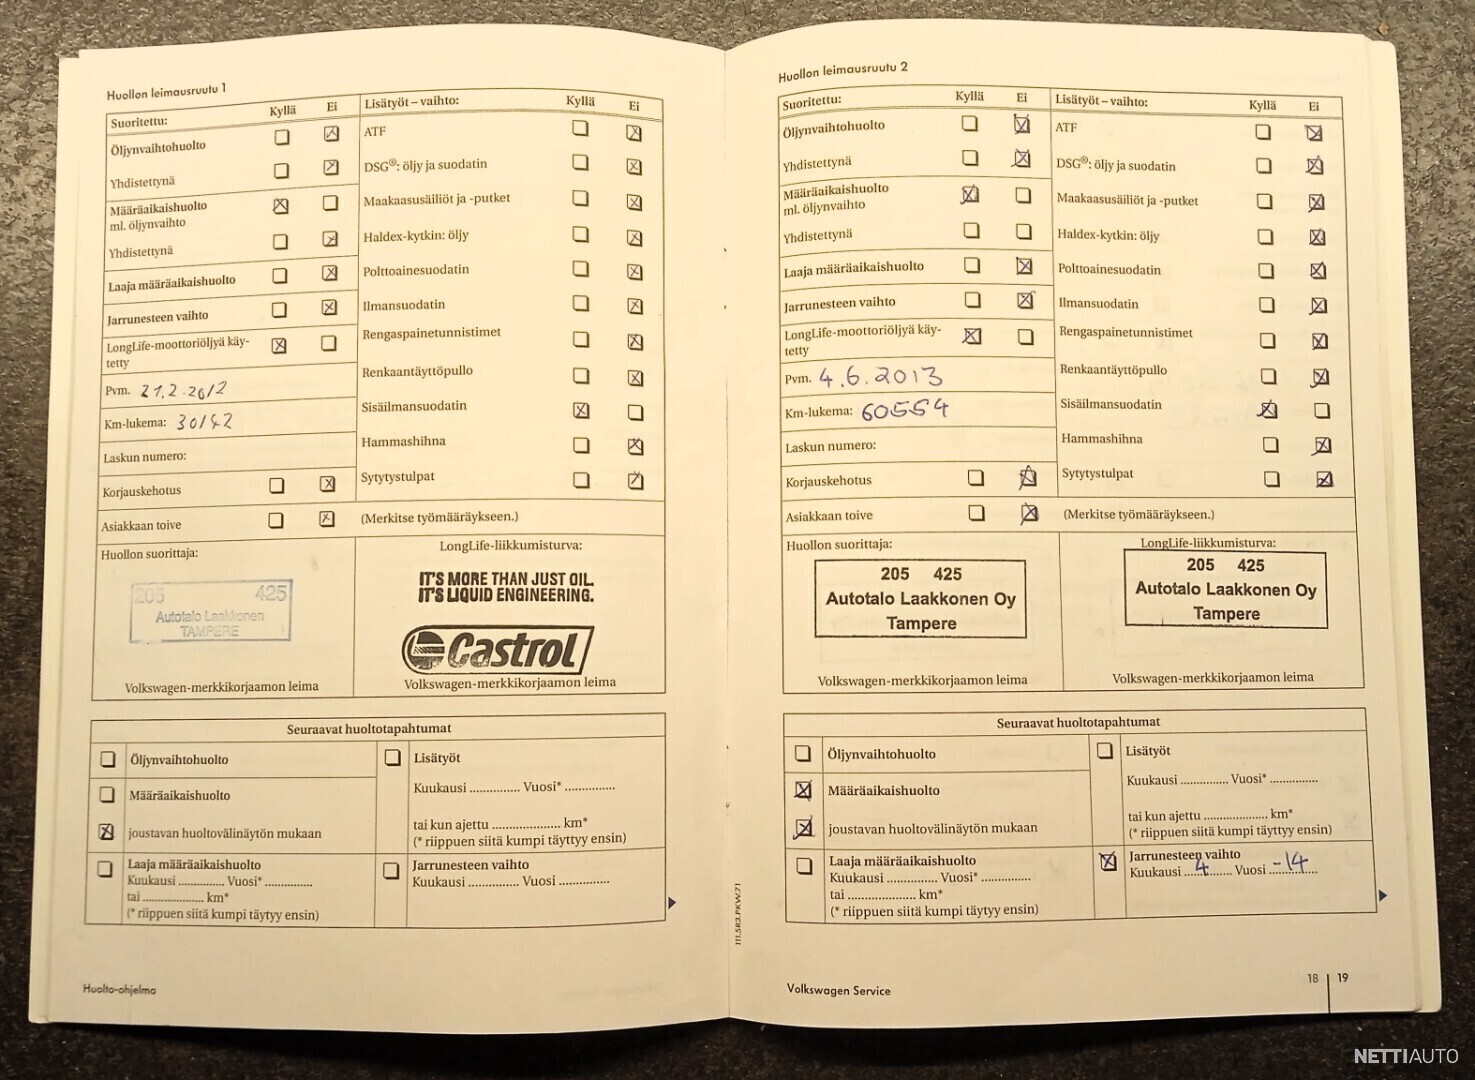 Huollon leimausruutu 1
Suoritettu: Kyllä Ei
Öljynvaihtohuolto
Yhdistettynä
Määräaikaishuolto
ml. öljynvaihto
Yhdistettynä
Laaja määräaikaishuolto
Jarrunesteen vaihto
LongLife-moottoriöljyä käy-
tetty
Pvm. 21.2.2012
Km-lukema: 30142
Laskun numero:
Korjauskehotus
Asiakkaan toive
Lisätyöt – vaihto: Kyllä Ei
ATF
DSG®: öljy ja suodatin
Maakaasusäiliöt ja -putket
Haldex-kytkin: öljy
Polttoainesuodatin
Ilmansuodatin
Rengaspainetunnistimet
Renkaantäyttöpullo
Sisäilmansuodatin
Hammashihna
Sytytystulpat
(Merkitse työmääräykseen.)
Huollon suorittaja:
205 425
Autotalo Laakkonen
TAMPERE
Volkswagen-merkkikorjaamon leima
LongLife-liikkumisturva:
IT'S MORE THAN JUST OIL.
IT'S LIQUID ENGINEERING.
Castrol
Volkswagen-merkkikorjaamon leima
Seuraavat huoltotapahtumat
Öljynvaihtohuolto
Määräaikaishuolto
joustavan huoltovälinäytön mukaan
Laaja määräaikaishuolto
Kuukausi .............. Vuosi* ..............
tai ...................... km*
(* riippuen siitä kumpi täytyy ensin)
Lisätyöt
Kuukausi ............... Vuosi* ...............
tai kun ajettu ..................... km*
(* riippuen siitä kumpi täyttyy ensin)
Jarrunesteen vaihto
Kuukausi ............... Vuosi ...............
Huolto-ohjelma
111.5R3.PKW.71
Huollon leimausruutu 2
Suoritettu: Kyllä Ei
Öljynvaihtohuolto
Yhdistettynä
Määräaikaishuolto
ml. öljynvaihto
Yhdistettynä
Laaja määräaikaishuolto
Jarrunesteen vaihto
LongLife-moottoriöljyä käy-
tetty
Pvm. 4.6.2013
Km-lukema: 60554
Laskun numero:
Korjauskehotus
Asiakkaan toive
Lisätyöt – vaihto: Kyllä Ei
ATF
DSG®: öljy ja suodatin
Maakaasusäiliöt ja -putket
Haldex-kytkin: öljy
Polttoainesuodatin
Ilmansuodatin
Rengaspainetunnistimet
Renkaantäyttöpullo
Sisäilmansuodatin
Hammashihna
Sytytystulpat
(Merkitse työmääräykseen.)
Huollon suorittaja:
205 425
Autotalo Laakkonen Oy
Tampere
Volkswagen-merkkikorjaamon leima
LongLife-liikkumisturva:
205 425
Autotalo Laakkonen Oy
Tampere
Volkswagen-merkkikorjaamon leima
Seuraavat huoltotapahtumat
Öljynvaihtohuolto
Määräaikaishuolto
joustavan huoltovälinäytön mukaan
Laaja määräaikaishuolto
Kuukausi .............. Vuosi* ..............
tai ...................... km*
(* riippuen siitä kumpi täytyy ensin)
Lisätyöt
Kuukausi .............. Vuosi* ..............
tai kun ajettu ..................... km*
(* riippuen siitä kumpi täyttyy ensin)
Jarrunesteen vaihto
Kuukausi ....4.... Vuosi -14
Volkswagen Service
18 | 19
NETTIAUTO